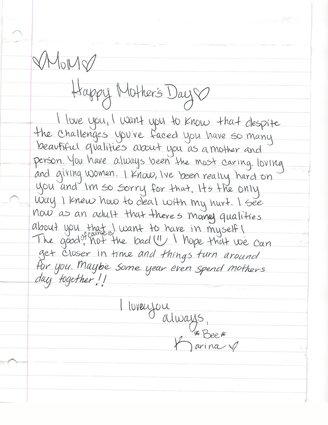 ♡MOM♡
Happy Mother's Day♡
I love you, I want you to know that despite
the challenges you've faced you have so many
beautiful qualities about you as a mother and
person. You have always been the most caring, loving
and giving women. I know, Ive been really hard on
you and Im so sorry for that. Its the only
way I knew how to deal with my hurt. I see
now as an adult that theres many qualities
about you that I want to have in myself!
The good of course not the bad☺ I hope that we can
get closer in time and things turn around
for you. Maybe some year even spend mothers
day together!!
I love you
always,
*Bee*
Karina ♡